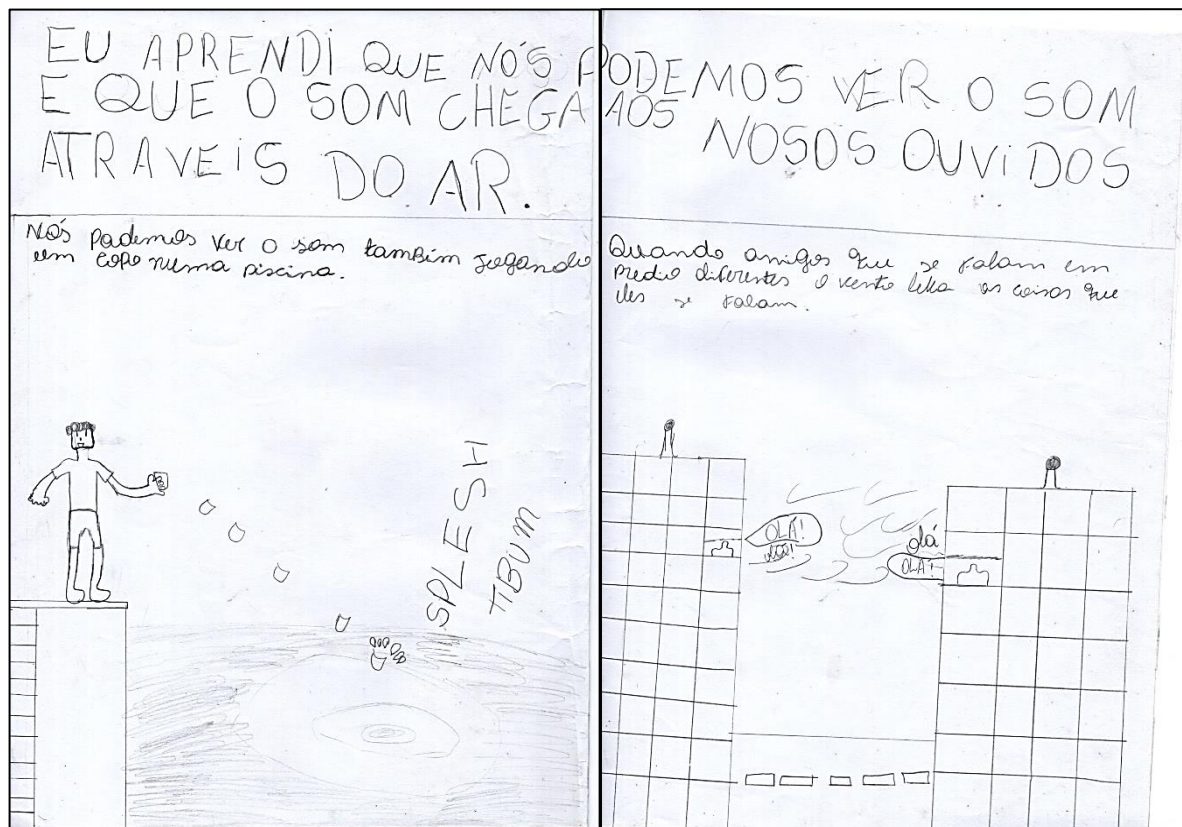 EU APRENDI QUE NÓS PODEMOS VER O SOM
E QUE O SOM CHEGA AOS NOSOS OUVIDOS
ATRAVEIS DO AR.
Nós podemos ver o som também jogando
um copo numa piscina.
SPLESH
TIBUM
Quando amigos que se falam em
predio diferentes o vento leva as coisas que
eles se falam.
OLÁ!
olá!
olá
OLÁ!